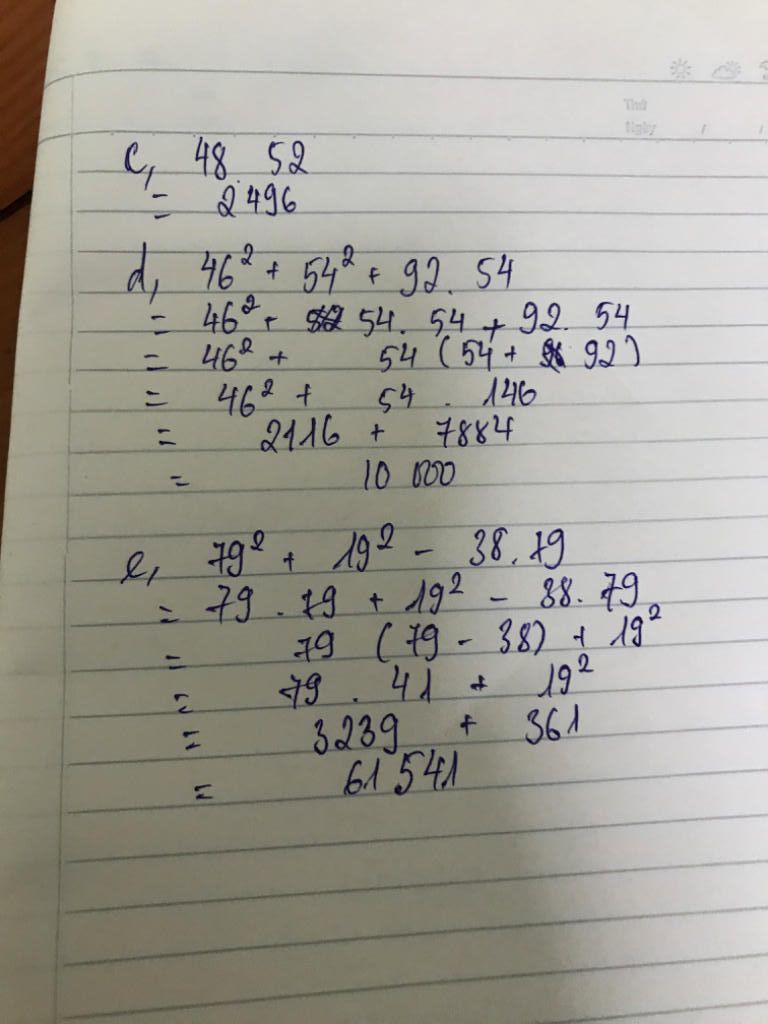 Thứ
Ngày / /
c, 48 . 52
= 2496
d, 46² + 54² + 92 . 54
= 46² + 54 . 54 + 92 . 54
= 46² + 54 (54 + 92)
= 46² + 54 . 146
= 2116 + 7884
= 10 000
e, 79² + 19² - 38 . 79
= 79 . 79 + 19² - 38 . 79
= 79 (79 - 38) + 19²
= 79 . 41 + 19²
= 3239 + 361
= 61 541